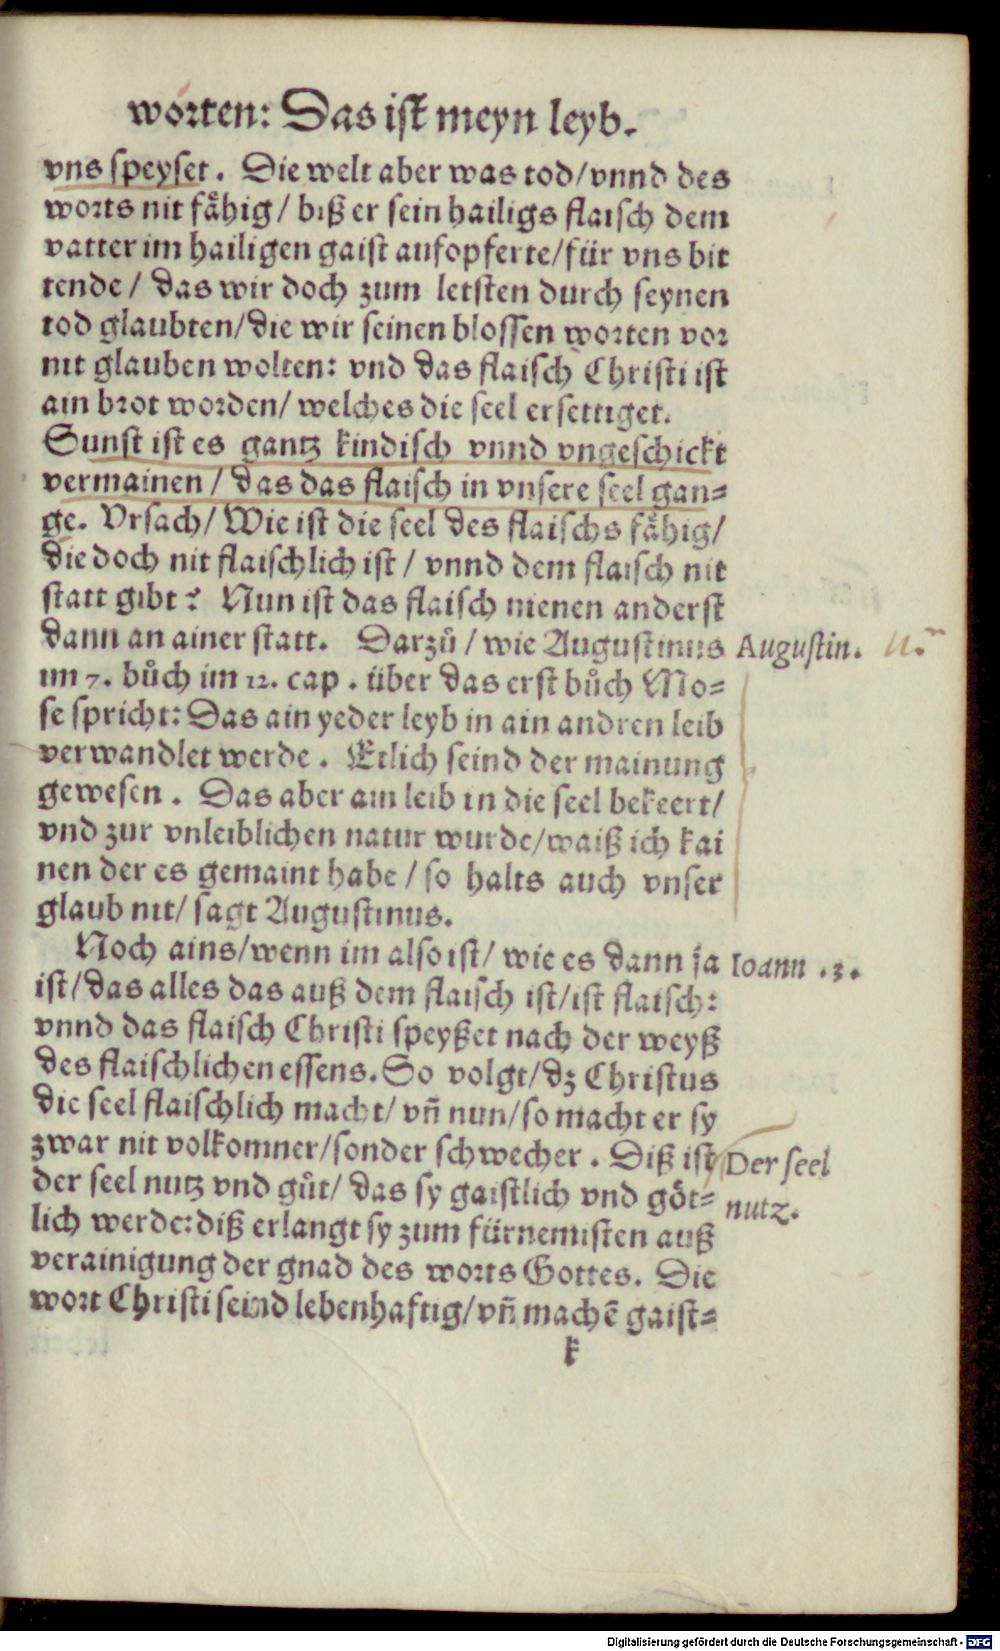 worten: Das ist meyn leyb.
vns speyset. Die welt aber was tod/vnnd des
worts nit fåhig/ biß er sein hailigs flaisch dem
vatter im hailigen gaist aufopferte/für vns bit
tende/ das wir doch zum letsten durch seynen
tod glaubten/die wir seinen blossen worten vor
nit glauben wolten: vnd das flaisch Christi ist
ain brot worden/ welches die seel ersettiget.
Sunst ist es gantz kindisch vnnd vngeschickt
vermainen/ das das flaisch in vnsere seel gan=
ge. Vrsach/ Wie ist die seel des flaischs fåhig/
die doch nit flaischlich ist/ vnnd dem flaisch nit
statt gibt? Nun ist das flaisch nienen anderst
dann an ainer statt. Darzů/ wie Augustinus
Augustin.
im 7. bůch im 12. cap. über das erst bůch Mo=
se spricht: Das ain yeder leyb in ain andren leib
verwandlet werde. Etlich seind der mainung
gewesen. Das aber ain leib in die seel bekeert/
vnd zur vnleiblichen natur wurde/waiß ich kai
nen der es gemaint habe/ so halts auch vnser
glaub nit/ sagt Augustinus.
Noch ains/wenn im also ist/ wie es dann ja
Ioann .3.
ist/das alles das auß dem flaisch ist/ist flaisch:
vnnd das flaisch Christi speyßet nach der weyß
des flaischlichen essens. So volgt/dz Christus
die seel flaischlich macht/ vn̄ nun/so macht er sy
zwar nit volkomner/sonder schwecher. Diß ist
Der seel
der seel nutz vnd gůt/ das sy gaistlich vnd göt=
nutz.
lich werde:diß erlangt sy zum fürnemisten auß
verainigung der gnad des worts Gottes. Die
wort Christi seind lebenhaftig/vn̄ machē gaist=
k
Digitalisierung gefördert durch die Deutsche Forschungsgemeinschaft - DFG